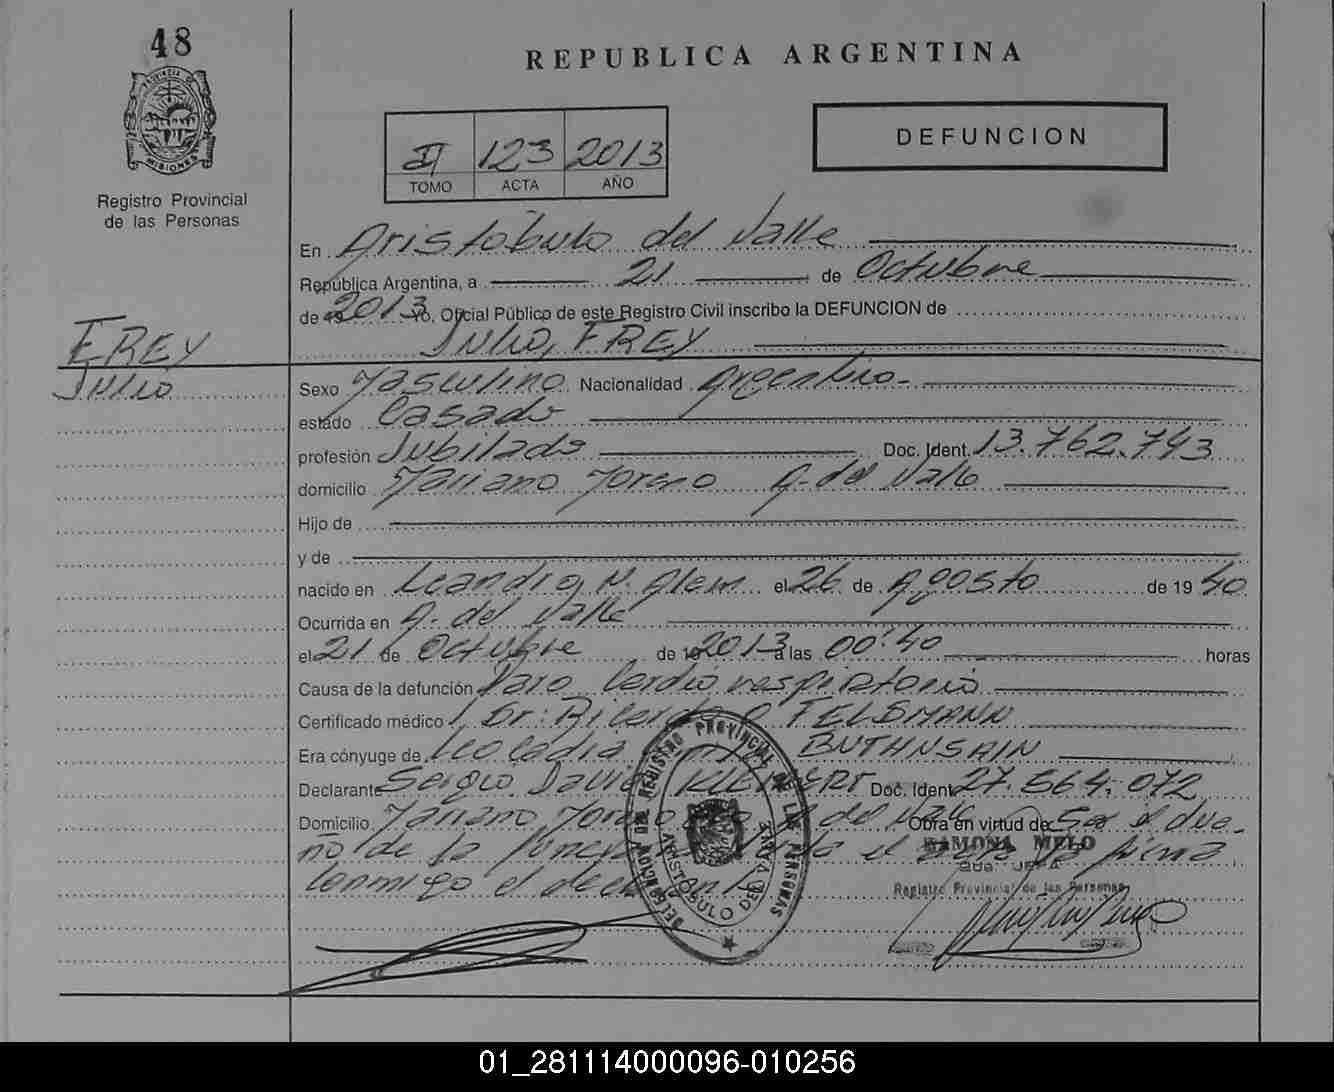 48
REPUBLICA ARGENTINA
PROVINCIA DE MISIONES
Registro Provincial
de las Personas
II 123 2013
TOMO ACTA AÑO
DEFUNCION
En Aristóbulo del Valle
República Argentina, a 21 de Octubre
de 19 2013 Yo, Oficial Público de este Registro Civil inscribo la DEFUNCION de
Julio, FREY
FREY
Julio
Sexo Masculino Nacionalidad Argentino.-
estado Casado
profesión Jubilado Doc. Ident. 13.762.743
domicilio Mariano Moreno A. del Valle
Hijo de
y de
nacido en Leandro, N. Alem el 26 de Agosto de 19 40
Ocurrida en A. del Valle
el 21 de Octubre de 19 2013 a las 00:40 horas
Causa de la defunción Paro Cardio respiratorio
Certificado médico Dr: Ricardo FELSMANN
Era cónyuge de Leocadia BUTHNSAIN
Declarante Sergio David Doc. Ident. 27.564.072
Domicilio Mariano Moreno A. del Valle Obra en virtud de Ser el due-
ño de la el acta la firma
conmigo el declarante
DELEGACION DEL REGISTRO PROVINCIAL DE LAS PERSONAS
ARISTOBULO DEL VALLE
RAMONA MELO
JEFA
Registro Provincial de las Personas
01_281114000096-010256